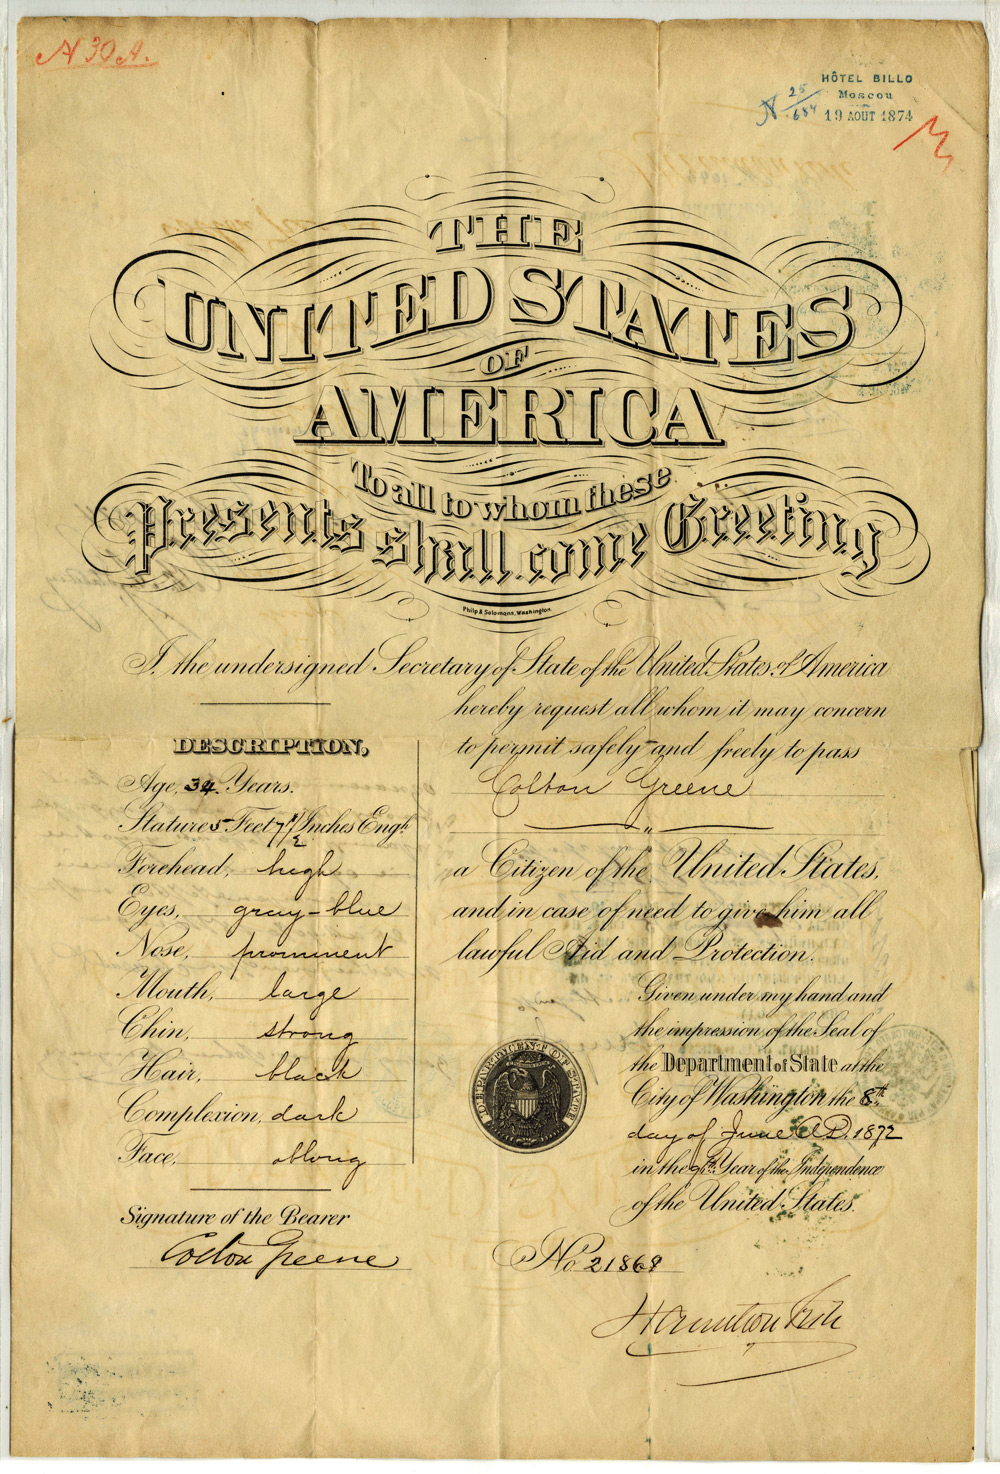 N 30 A.
HÔTEL BILLO
Moscou
N 25/684 19 AOÛT 1874
THE
UNITED STATES
OF
AMERICA
To all to whom these
Presents shall come Greeting
Philp & Solomons, Washington.
I the undersigned Secretary of State of the United States of America
hereby request all whom it may concern
to permit safely and freely to pass
Colton Greene
"
a Citizen of the United States,
and in case of need to give him all
lawful Aid and Protection.
DESCRIPTION,
Age, 34 Years.
Stature 5 Feet 7 1/2 Inches Engh.
Forehead, high
Eyes, gray-blue
Nose, prominent
Mouth, large
Chin, strong
Hair, black
Complexion, dark
Face, oblong
Signature of the Bearer
Colton Greene
Given under my hand and
the impression of the Seal of
the Department of State at the
City of Washington the 8th
day of June A.D. 1872
in the 96th Year of the Independence
of the United States.
DEPARTMENT OF STATE
No 21868
Hamilton Fish